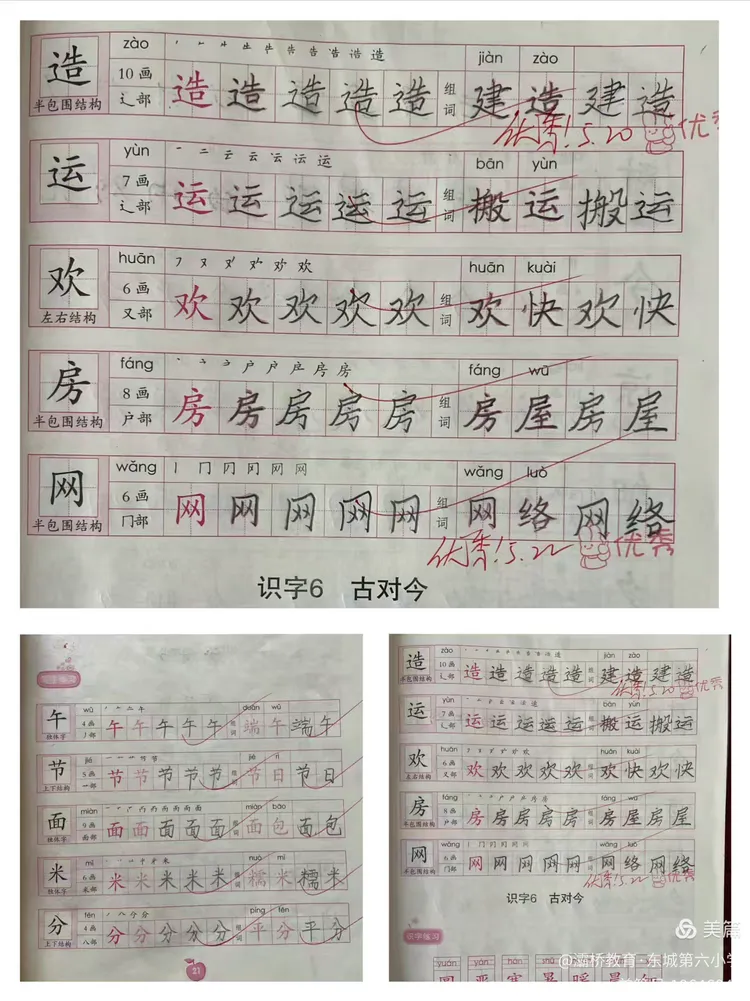 zào jiàn zào
造 10画 造造造造造 组词 建造建造
半包围结构 辶部
优秀!5.20 优秀
yùn bān yùn
运 7画 运运运运运 组词 搬运搬运
半包围结构 辶部
huān huān kuài
欢 6画 欢欢欢欢欢 组词 欢快欢快
左右结构 又部
fáng fáng wū
房 8画 房房房房房 组词 房屋房屋
半包围结构 户部
wǎng wǎng luò
网 6画 网网网网网 组词 网络网络
半包围结构 冂部
优秀!5.22 优秀
识字6 古对今
wǔ duān wǔ
午 4画 午午午午午 组词 端午端午
独体字
jié jié rì
节 5画 节节节节节 组词 节日节日
上下结构
miàn miàn bāo
面 9画 面面面面面 组词 面包面包
独体字 面部
mǐ nuò mǐ
米 6画 米米米米米 组词 糯米糯米
独体字 米部
fēn píng fēn
分 4画 分分分分分 组词 平分平分
上下结构 八部
21
zào jiàn zào
造 10画 造造造造造 组词 建造建造
半包围结构 辶部
优秀!5.20 优秀
yùn bān yùn
运 7画 运运运运运 组词 搬运搬运
半包围结构 辶部
huān huān kuài
欢 6画 欢欢欢欢欢 组词 欢快欢快
左右结构 又部
fáng fáng wū
房 8画 房房房房房 组词 房屋房屋
半包围结构 户部
wǎng wǎng luò
网 6画 网网网网网 组词 网络网络
半包围结构 冂部
优秀!5.22 优秀
识字6 古对今
识字练习
美篇
@灞桥教育·东城第六小学